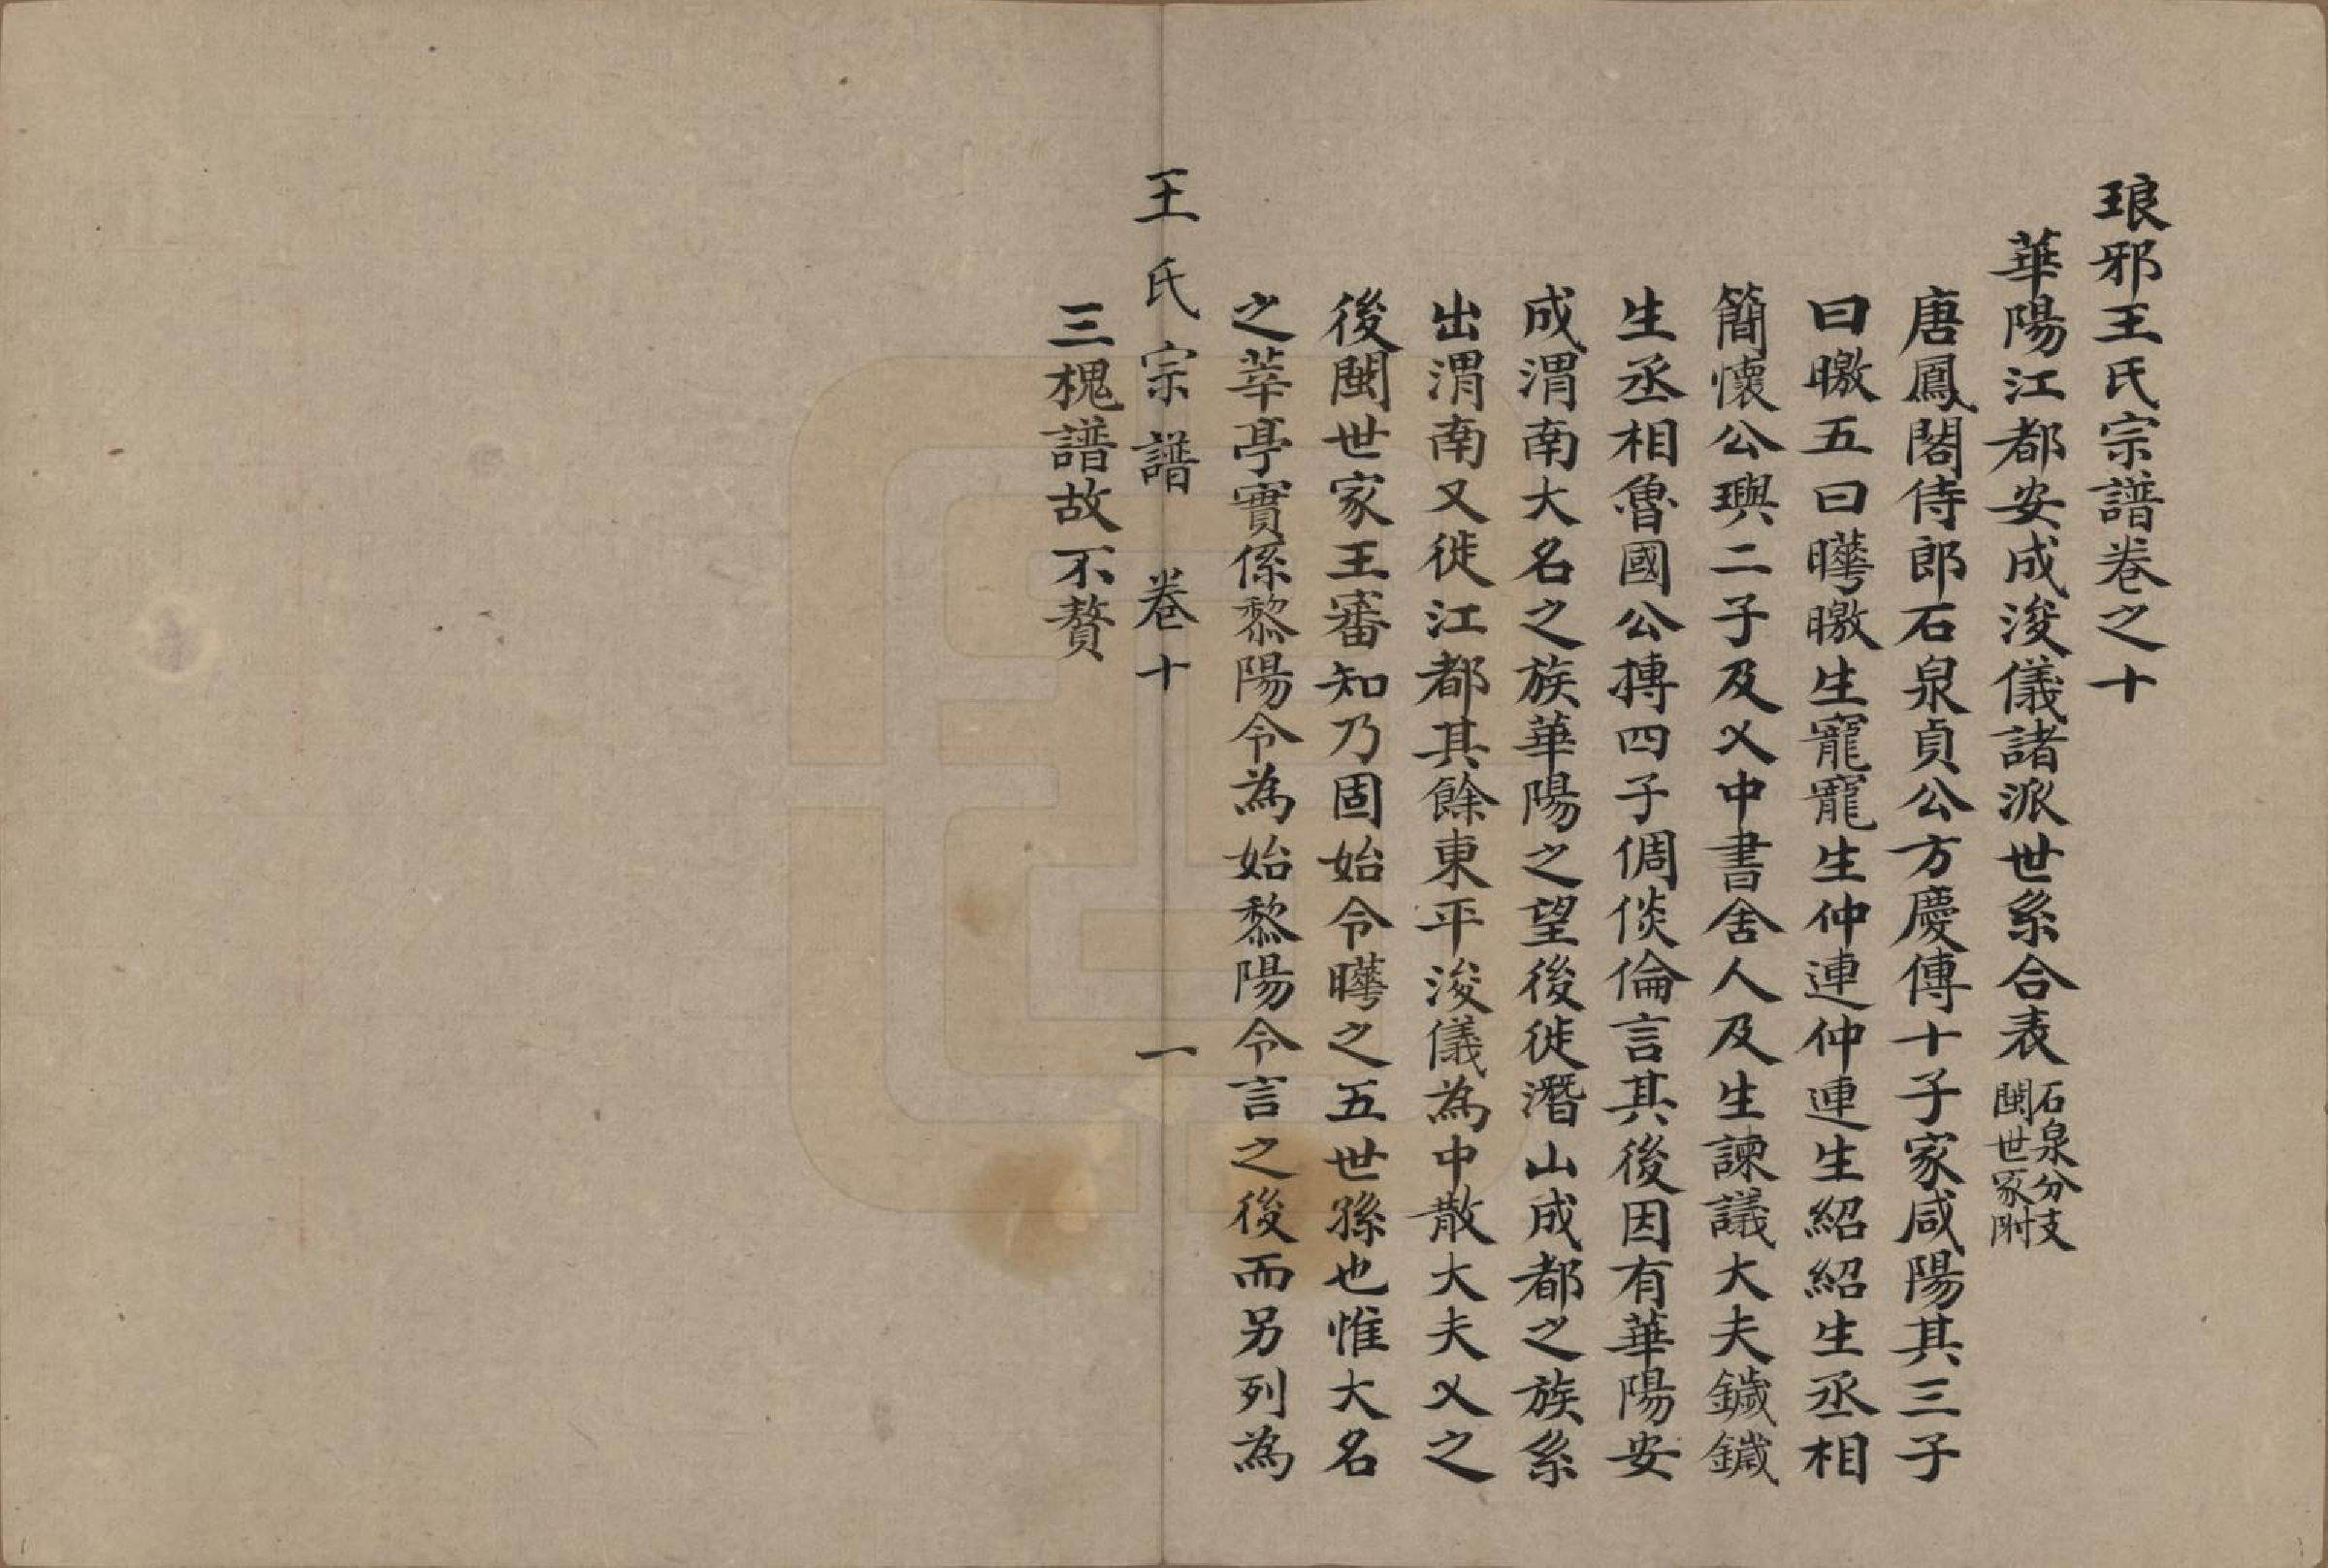 琅邪王氏宗譜卷之十
華陽江都安成浚儀諸派世系合表石泉分支閩世家附
唐鳳閣侍郎石泉貞公方慶傳十子家咸陽其三子
曰曒五曰曄曒生寵寵生仲連仲連生紹紹生丞相
簡懷公璵二子及乂中書舍人及生諫議大夫鐬鐬
生丞相魯國公摶四子倜倓倫言其後因有華陽安
成渭南大名之族華陽之望後徙潛山成都之族系
出渭南又徙江都其餘東平浚儀為中散大夫乂之
後閩世家王審知乃固始令曄之五世孫也惟大名
之莘亭實係黎陽令為始黎陽令言之後而另列為
王氏宗譜 卷十 一
三槐譜故不贅